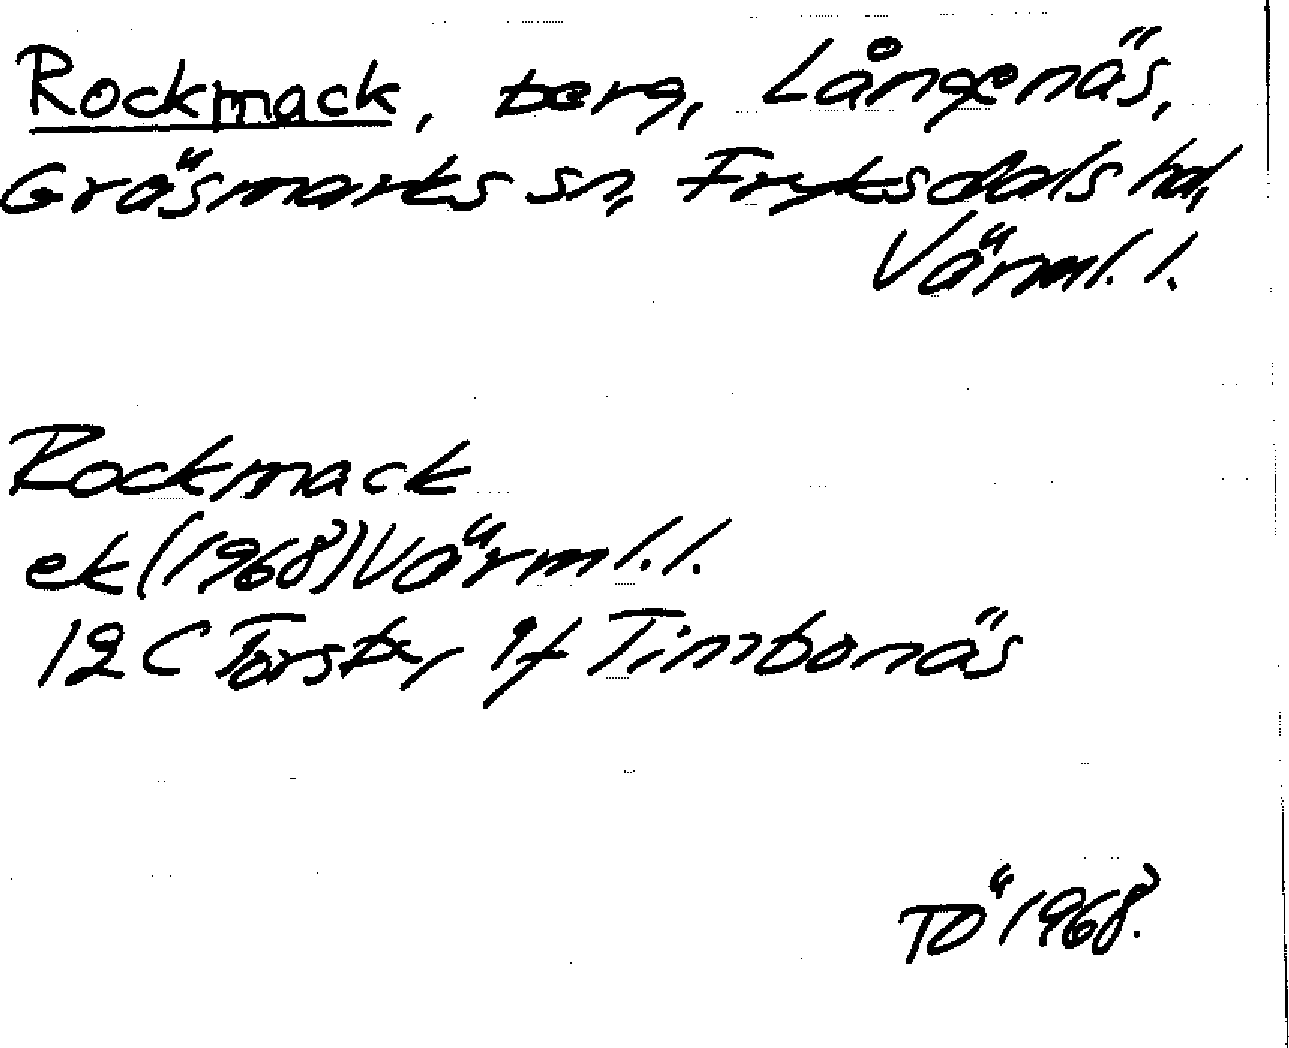 Rockmack, berg, Långenäs,
Gräsmarks sn, Fryksdals hd,
Värml. l.
Rockmack
ek (1968) Värml. l.
12 C Torsby 9f Timbonäs
TÖ 1968.